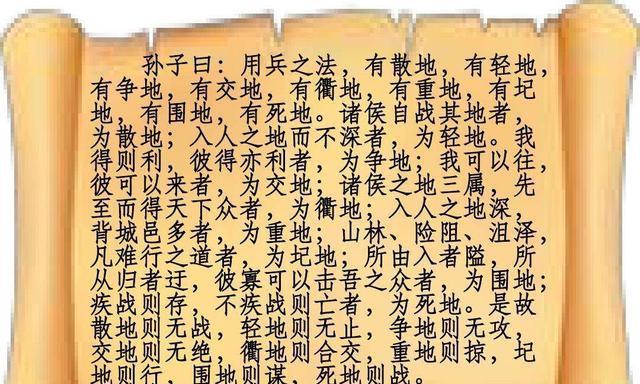 孙子曰：用兵之法，有散地，有轻地，
有争地，有交地，有衢地，有重地，有圮
地，有围地，有死地。诸侯自战其地者，
为散地；入人之地而不深者，为轻地。我
得则利，彼得亦利者，为争地；我可以往，
彼可以来者，为交地；诸侯之地三属，先
至而得天下众者，为衢地；入人之地深，
背城邑多者，为重地；山林、险阻、沮泽，
凡难行之道者，为圮地；所由入者隘，所
从归者迂，彼寡可以击吾之众者，为围地；
疾战则存，不疾战则亡者，为死地。是故
散地则无战，轻地则无止，争地则无攻，
交地则无绝，衢地则合交，重地则掠，圮
地则行，围地则谋，死地则战。